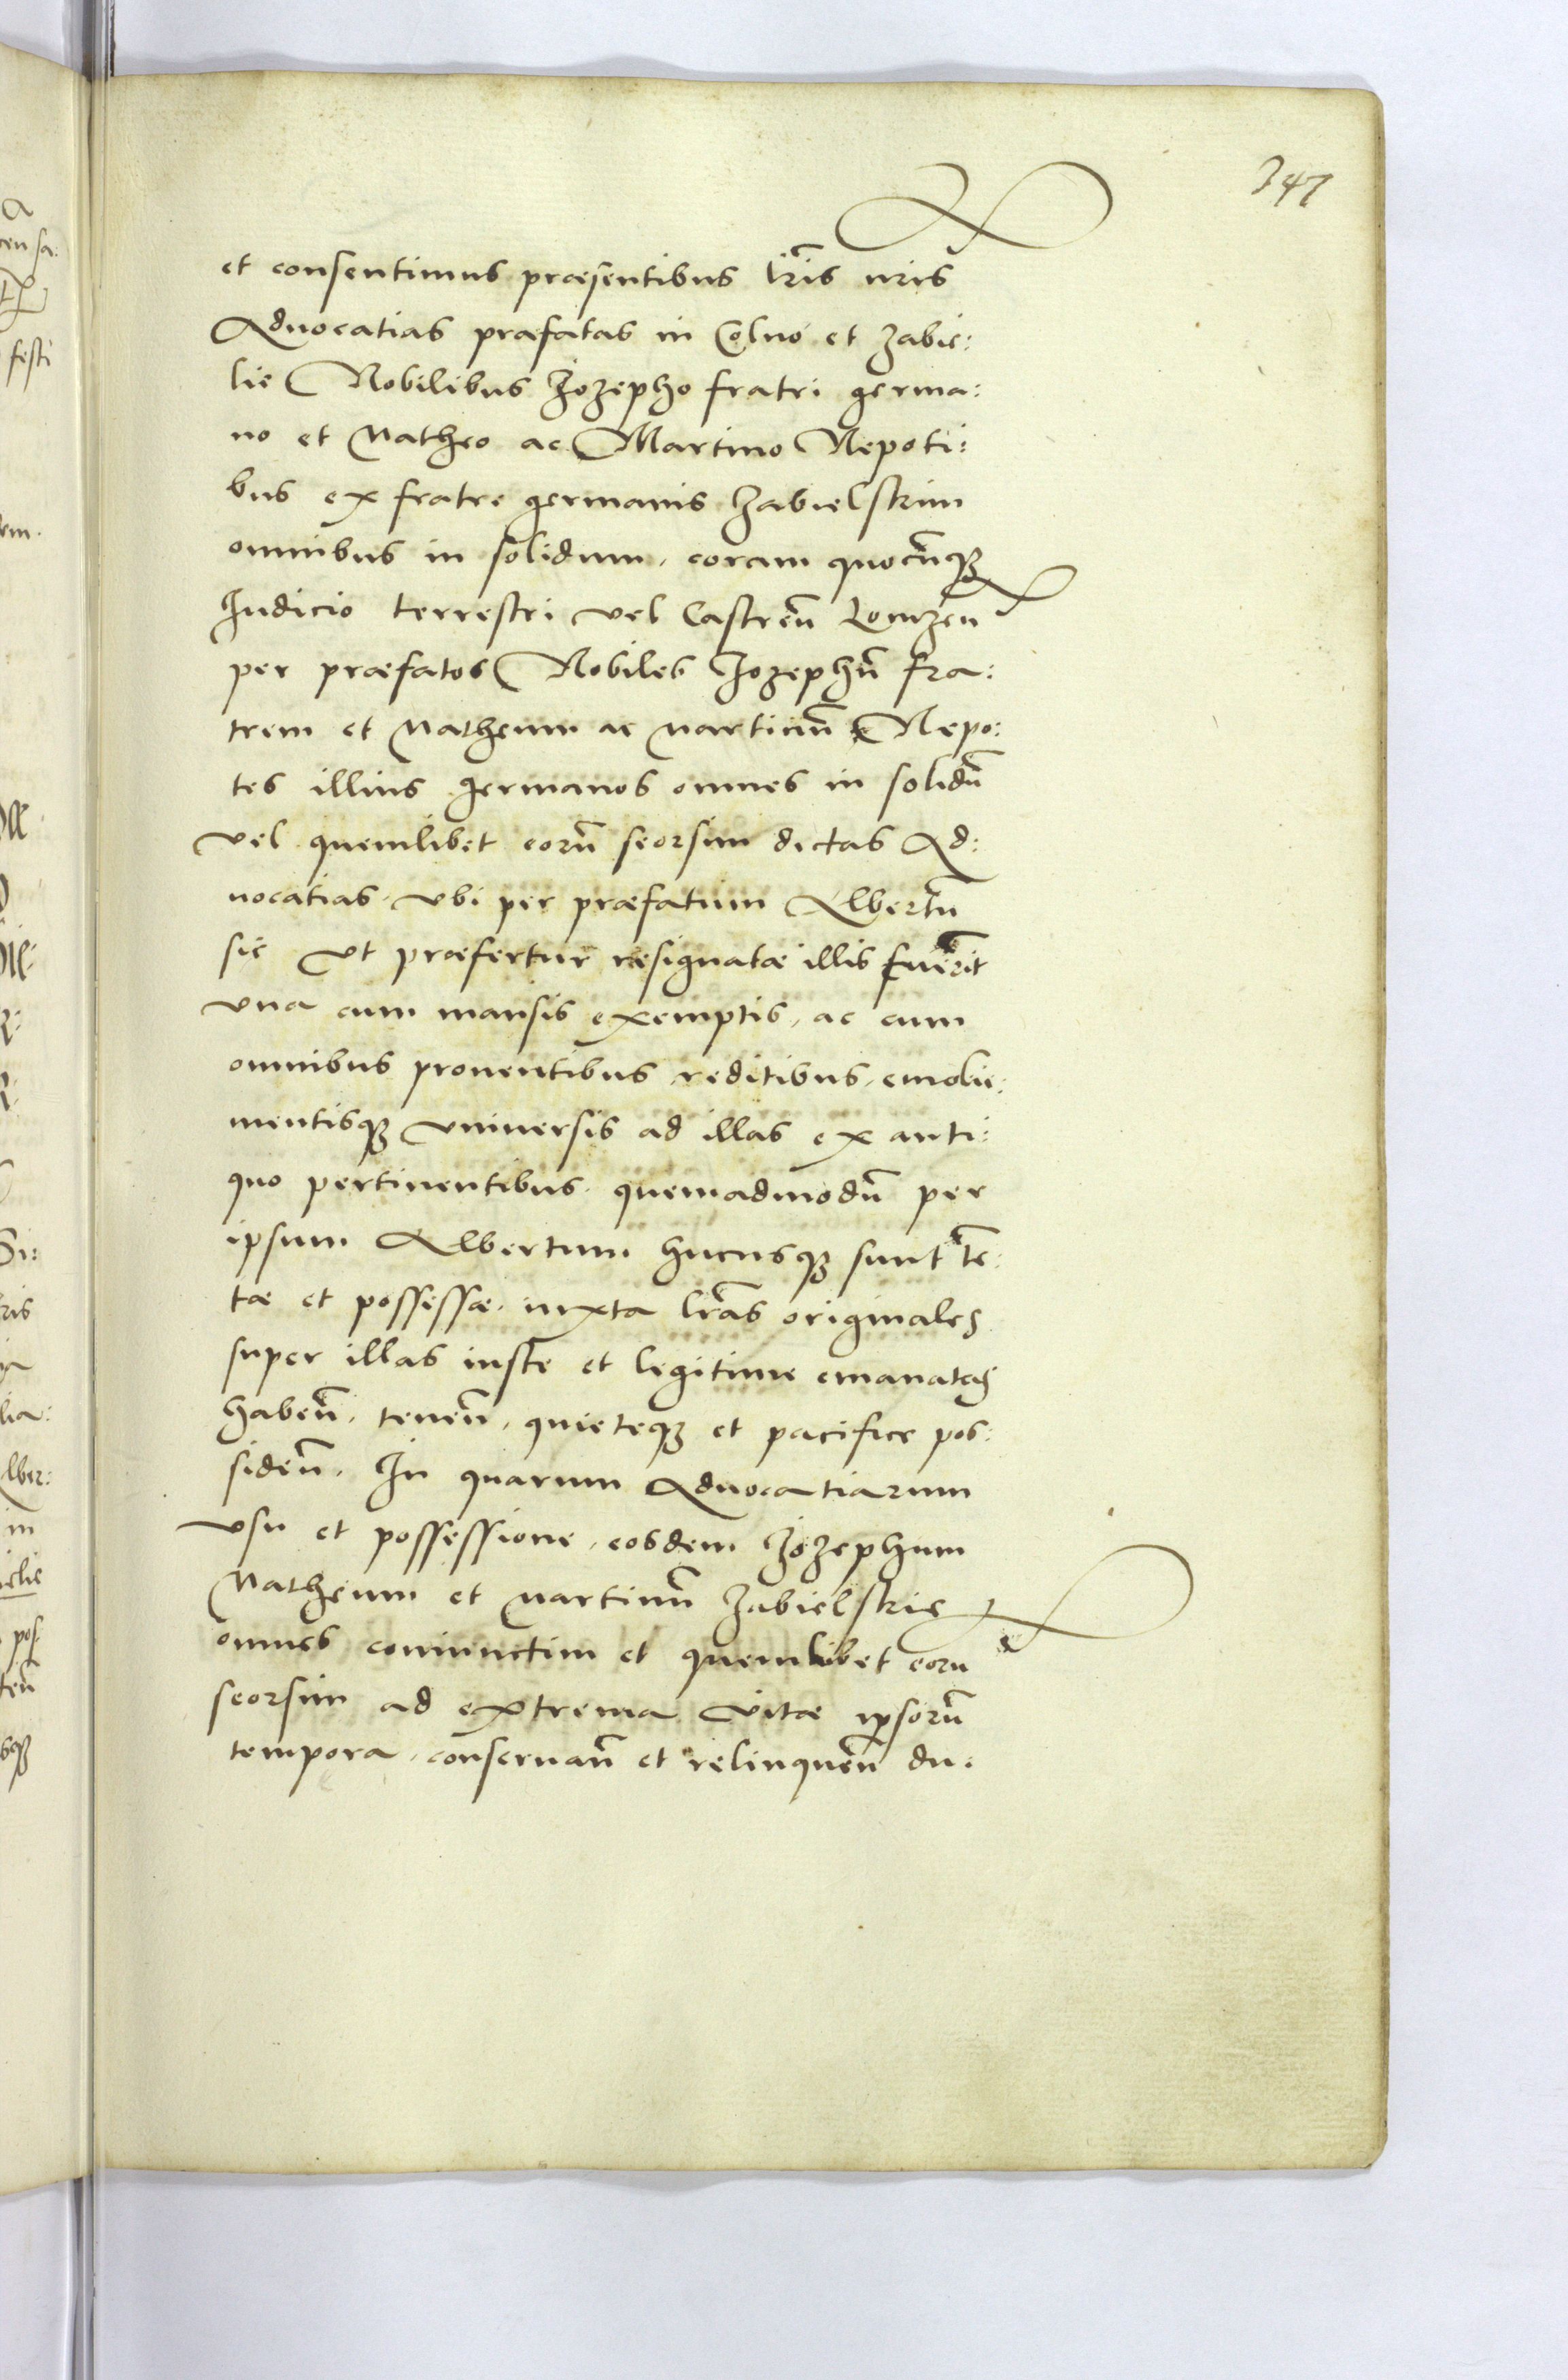 347
et consentimus præsentibus lr̃is nr̃is
Aduocatias præfatas in Colno et Zabie:
lie Nobilibus Jozepho fratri germa:
no et Matheo ac Martino Nepoti:
bus ex fratre germanis Zabielskim
omnibus in solidum, coram quocũq₃
Iudicio terrestri vel Castreñ Lomzeñ
per præfatos Nobiles Jozephũ fra:
trem et Matheum ac Martinũ Nepo:
tes illius germanos omnes in solidũ
vel quemlibet eorũ seorsim dictas Ad:
uocatias, vbi per præfatum Albertũ
sic vt præfertur resignatæ illis fuer̃it
vna cum mansis exemptis, ac cum
omnibus prouentibus, reditibus, emolie:
mentisq₃ vniuersis ad illas ex anti:
quo pertinentibus, quemadmodũ per
ipsum Albertum hucusq₃ sunt tẽ:
tæ et possessæ, iuxta lr̃as originales
super illas iuste et legitime emanatas
habeñ, teneñ, quieteq₃ et pacifice pos:
sideñ. In quarum Aduocatiarum
vsu et possessione, eosdem Jozephum
Matheum et Martinũ Zabielskie
omnes coniunctim et quemlibet eorũ
seorsim ad extrema vitæ ipsorũ
tempora, conseruañ et relinqueñ du: